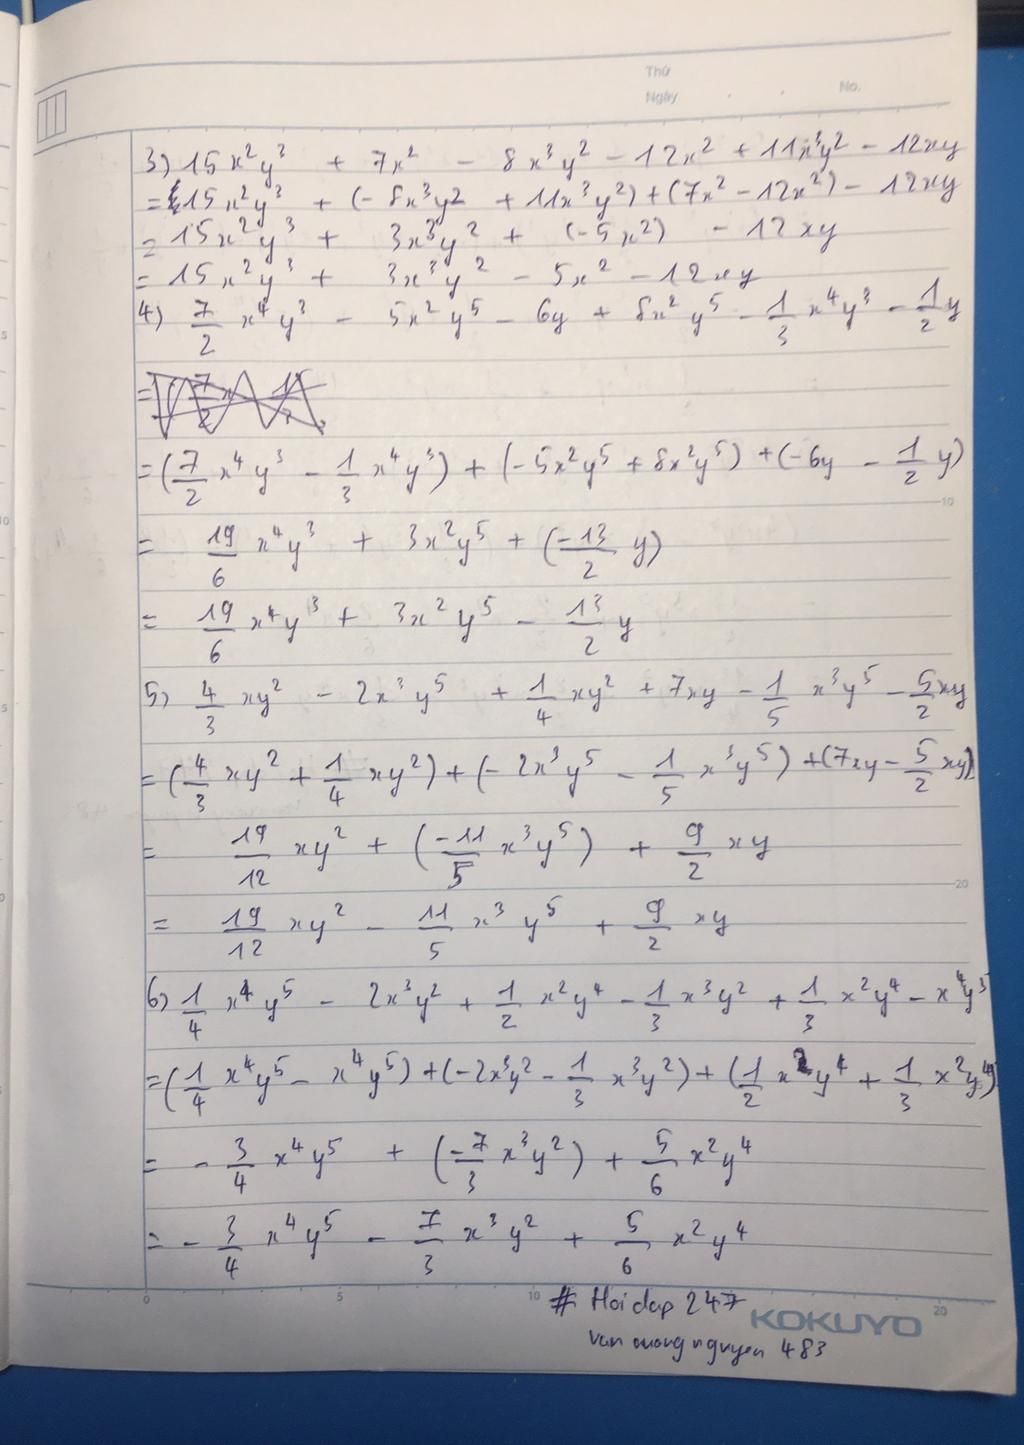 Thứ
Ngày . . No.
3) 15x²y³ + 7x² - 8x³y² - 12x² + 11x³y² - 12xy
= 15x²y³ + (-8x³y² + 11x³y²) + (7x² - 12x²) - 12xy
= 15x²y³ + 3x³y² + (-5x²) - 12xy
= 15x²y³ + 3x³y² - 5x² - 12xy
4) 7/2 x⁴y³ - 5x²y⁵ - 6y + 8x²y⁵ - 1/3 x⁴y³ - 1/2 y
= (7/2 x⁴y³ - 1/3 x⁴y³) + (-5x²y⁵ + 8x²y⁵) + (-6y - 1/2 y)
10
= 19/6 x⁴y³ + 3x²y⁵ + (-13/2 y)
= 19/6 x⁴y³ + 3x²y⁵ - 13/2 y
5) 4/3 xy² - 2x³y⁵ + 1/4 xy² + 7xy - 1/5 x³y⁵ - 5/2 xy
= (4/3 xy² + 1/4 xy²) + (-2x³y⁵ - 1/5 x³y⁵) + (7xy - 5/2 xy)
= 19/12 xy² + (-11/5 x³y⁵) + 9/2 xy
20
= 19/12 xy² - 11/5 x³y⁵ + 9/2 xy
6) 1/4 x⁴y⁵ - 2x³y² + 1/2 x²y⁴ - 1/3 x³y² + 1/3 x²y⁴ - x⁴y⁵
= (1/4 x⁴y⁵ - x⁴y⁵) + (-2x³y² - 1/3 x³y²) + (1/2 x²y⁴ + 1/3 x²y⁴)
= - 3/4 x⁴y⁵ + (-7/3 x³y²) + 5/6 x²y⁴
= - 3/4 x⁴y⁵ - 7/3 x³y² + 5/6 x²y⁴
0 5 10 20
# Hoidap 247
KOKUYO
van cuong nguyen 483